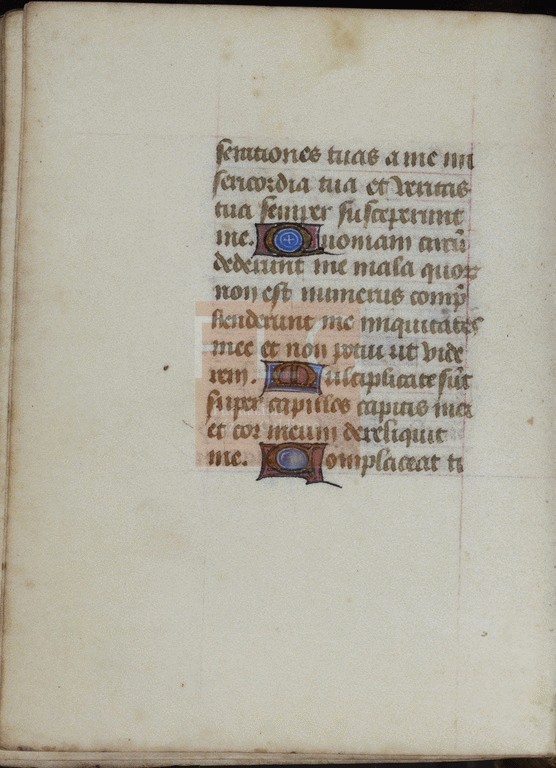 serationes tuas a me mi
sericordia tua et veritas
tua semper susceperunt
me. Quoniam circū
dederunt me mala quorꝝ
non est numerus comp̄
henderunt me iniquitates
mee et non potui ut vide
rem. Multiplicate sūt
super capillos capitis mei
et cor meum dereliquit
me. Complaceat ti